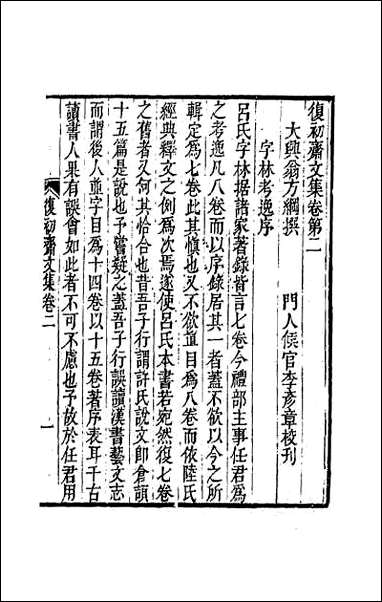 復初齋文集卷第二
大興翁方綱撰　門人侯官李彥章校刊
字林考逸序
呂氏字林據諸家著錄皆言七卷今禮部主事任君爲
之考逸凡八卷而以序錄居其一者蓋不欲以今之所
輯定爲七卷此其愼也又不欲直目爲八卷而依陸氏
經典釋文之例爲次焉遂使呂氏本書若宛然復七卷
之舊者又何其恰合也昔吾子行謂許氏說文即倉頡
十五篇是說也予嘗疑之蓋吾子行誤讀漢書藝文志
而謂後人並字目爲十四卷以十五卷著序表耳千古
讀書人果有誤會如此者不可不慮也予故於任君用
復初齋文集卷二
一